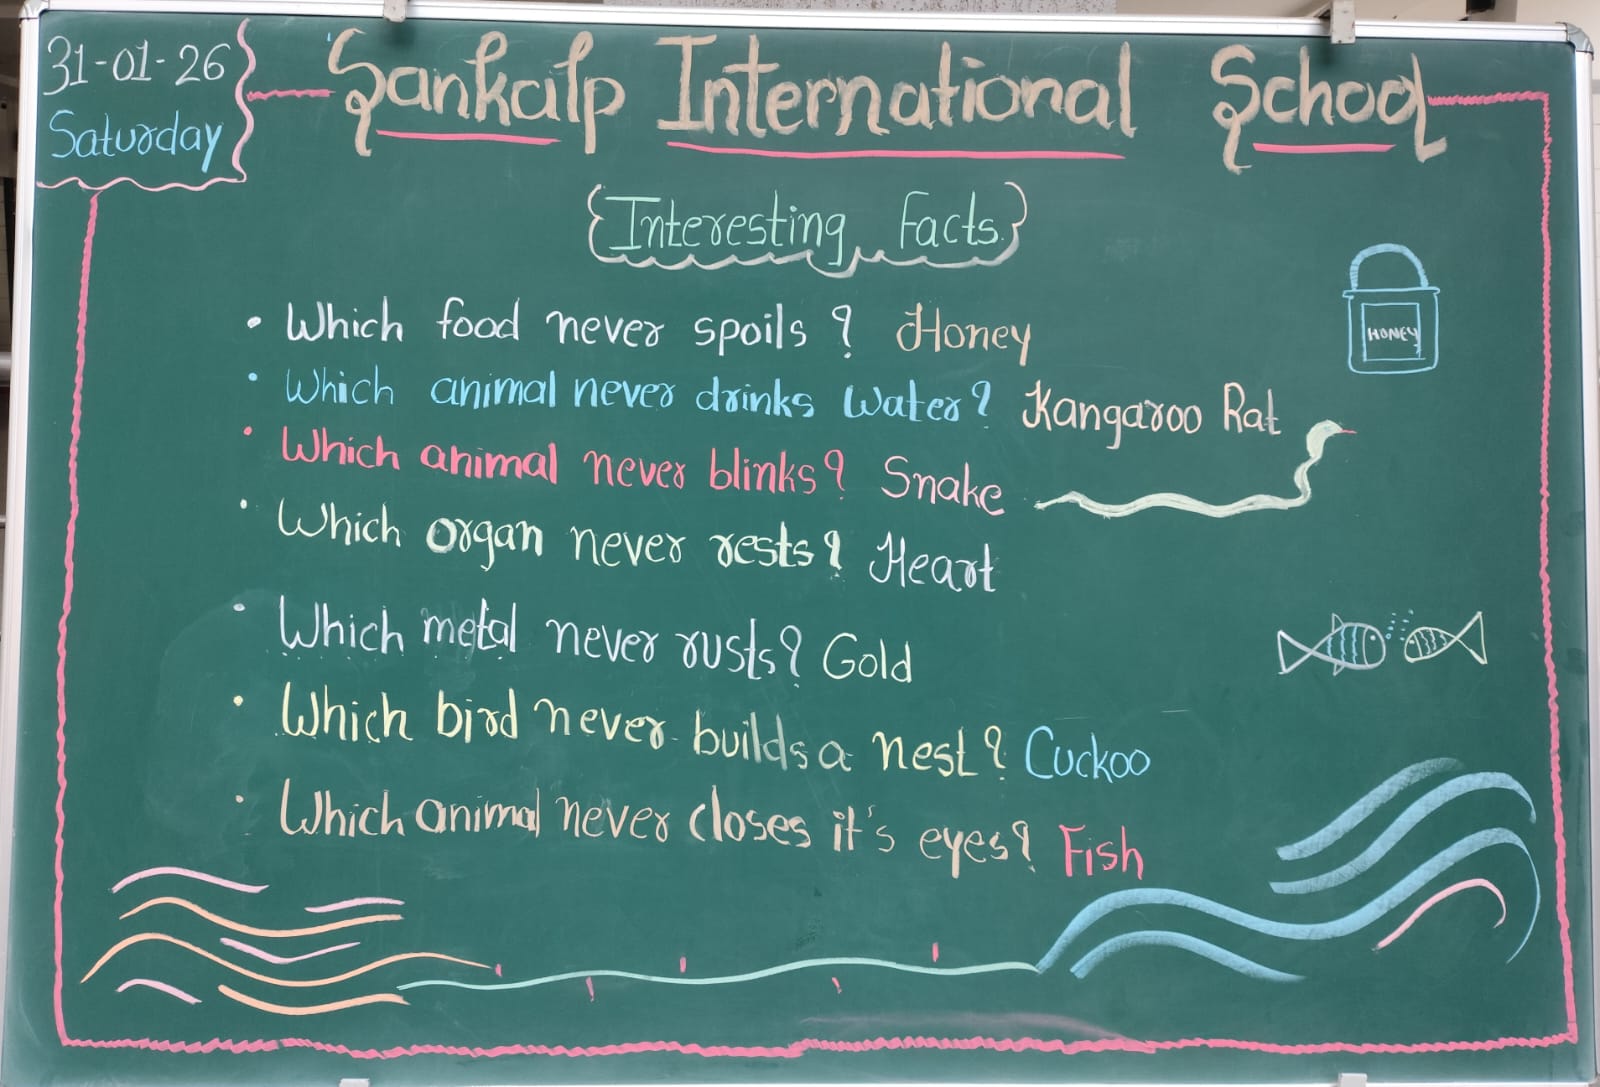 31-01-26
Saturday
Sankalp International School
Interesting Facts
• Which food never spoils? Honey
• Which animal never drinks water? Kangaroo Rat
• Which animal never blinks? Snake
• Which organ never rests? Heart
• Which metal never rusts? Gold
• Which bird never builds a nest? Cuckoo
• Which animal never closes it's eyes? Fish
HONEY